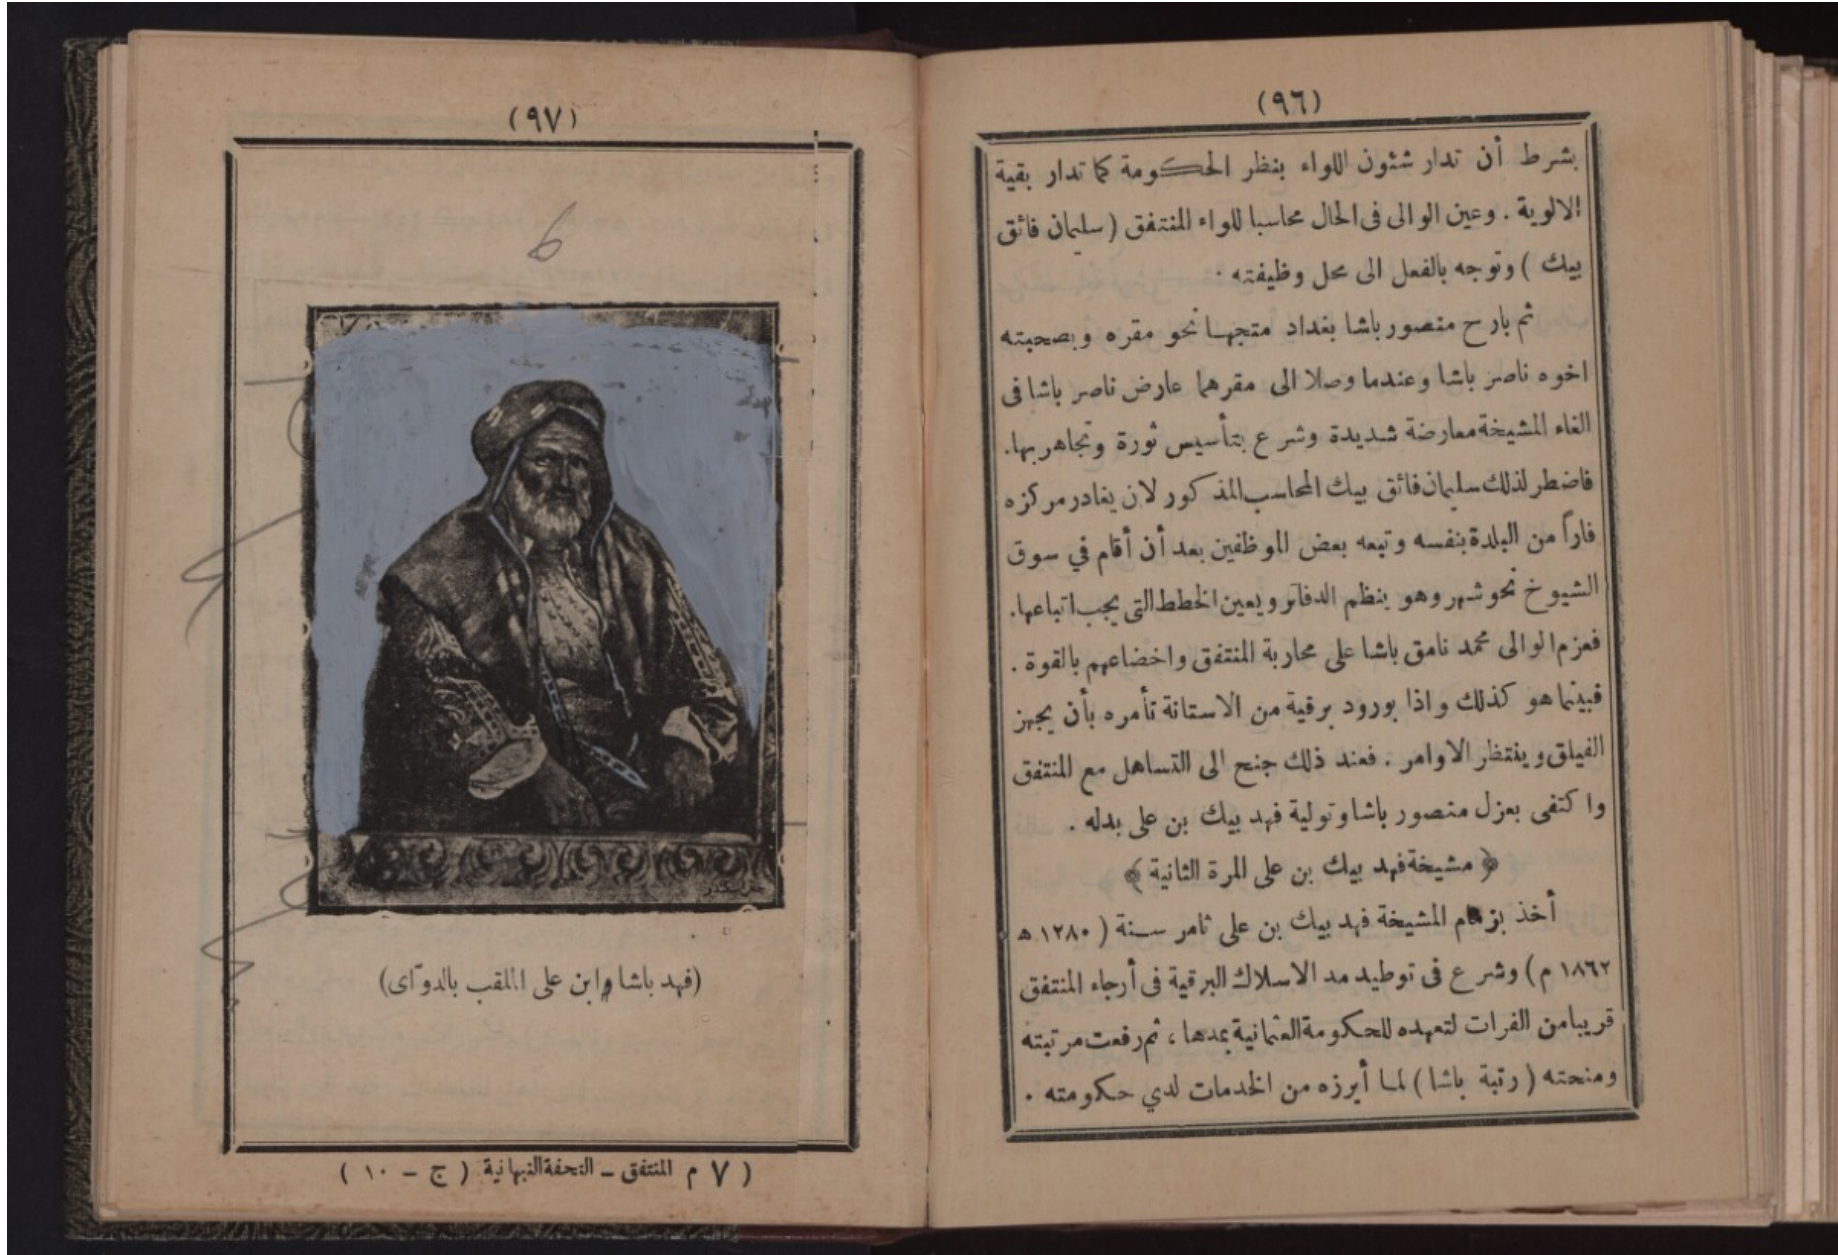 (٩٦)
بشرط أن تدار شئون اللواء بنظر الحكومة كما تدار بقية
الالوية . وعين الوالى فى الحال محاسبا للواء المنتفق (سليمان فائق
بيك ) وتوجه بالفعل الى محل وظيفته .
ثم بارح منصور باشا بغداد متجها نحو مقره وبصحبته
اخوه ناصر باشا وعندما وصلا الى مقرهما عارض ناصر باشا فى
الغاء المشيخة معارضة شديدة وشرع بتأسيس ثورة وتجاهر بها.
فاضطر لذلك سليمان فائق بيك المحاسب المذكور لان يغادر مركزه
فاراً من البلدة بنفسه وتبعه بعض الموظفين بعد أن أقام في سوق
الشيوخ نحو شهر وهو ينظم الدفاتر ويعين الخطط التى يجب اتباعها.
فعزم الوالى محمد نامق باشا على محاربة المنتفق واخضاعهم بالقوة .
فبينما هو كذلك واذا بورود برقية من الاستانة تأمره بأن يجهز
الفيلق وينتظر الاوامر . فعند ذلك جنح الى التساهل مع المنتفق
واكتفى بعزل منصور باشا وتولية فهد بيك بن على بدله .
﴿ مشيخة فهد بيك بن على المرة الثانية ﴾
أخذ بزمام المشيخة فهد بيك بن على ثامر سنة ( ١٢٨٠ ه
١٨٦٢ م) وشرع فى توطيد مد الاسلاك البرقية فى أرجاء المنتفق
قريبا من الفرات لتعهده للحكومة العثمانية بمدها ، ثم رفعت مرتبته
ومنحته ( رتبة باشا ) لما أبرزه من الخدمات لدي حكومته .
(٩٧)
(فهد باشا وابن على الملقب بالدوّاى)
( ٧ م المنتفق ــ التحفة النبهانية ( ج ــ ١٠ )